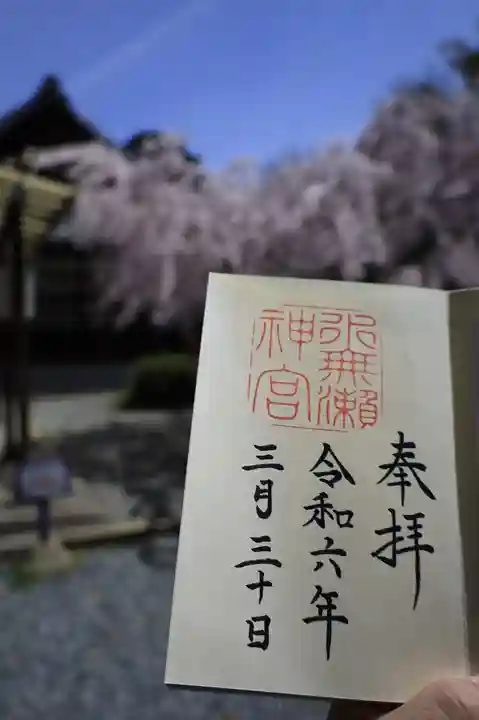 奉拝
水無瀬
神宮
令和六年
三月三十日